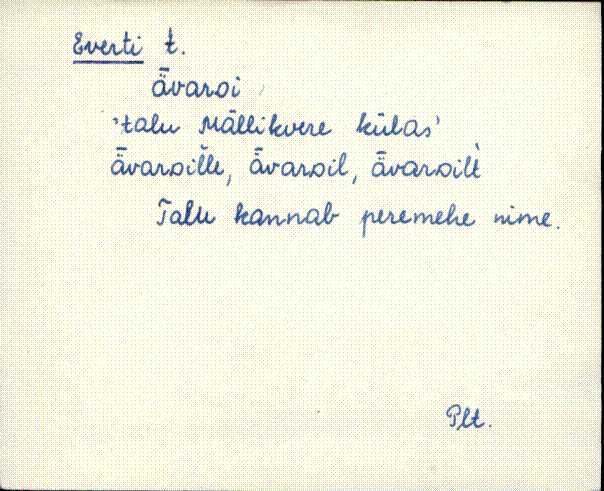 Everti t.
Ǟvaroi
'talu Mällikvere külas'
Ǟvaroil̆le, ǟvaroil, ǟvaroilt̀
Talu kannab peremehe nime.
Plt.